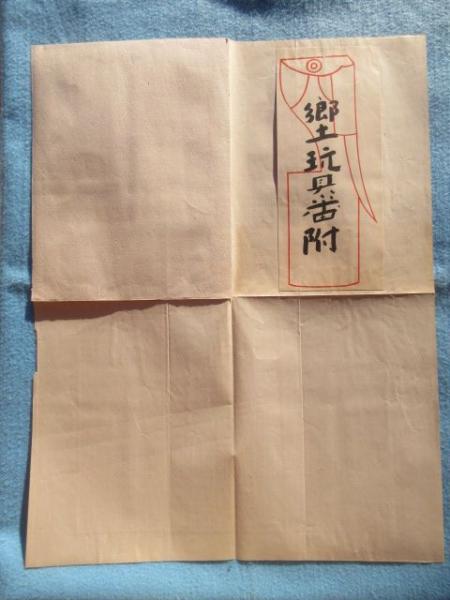 郷土玩具番附